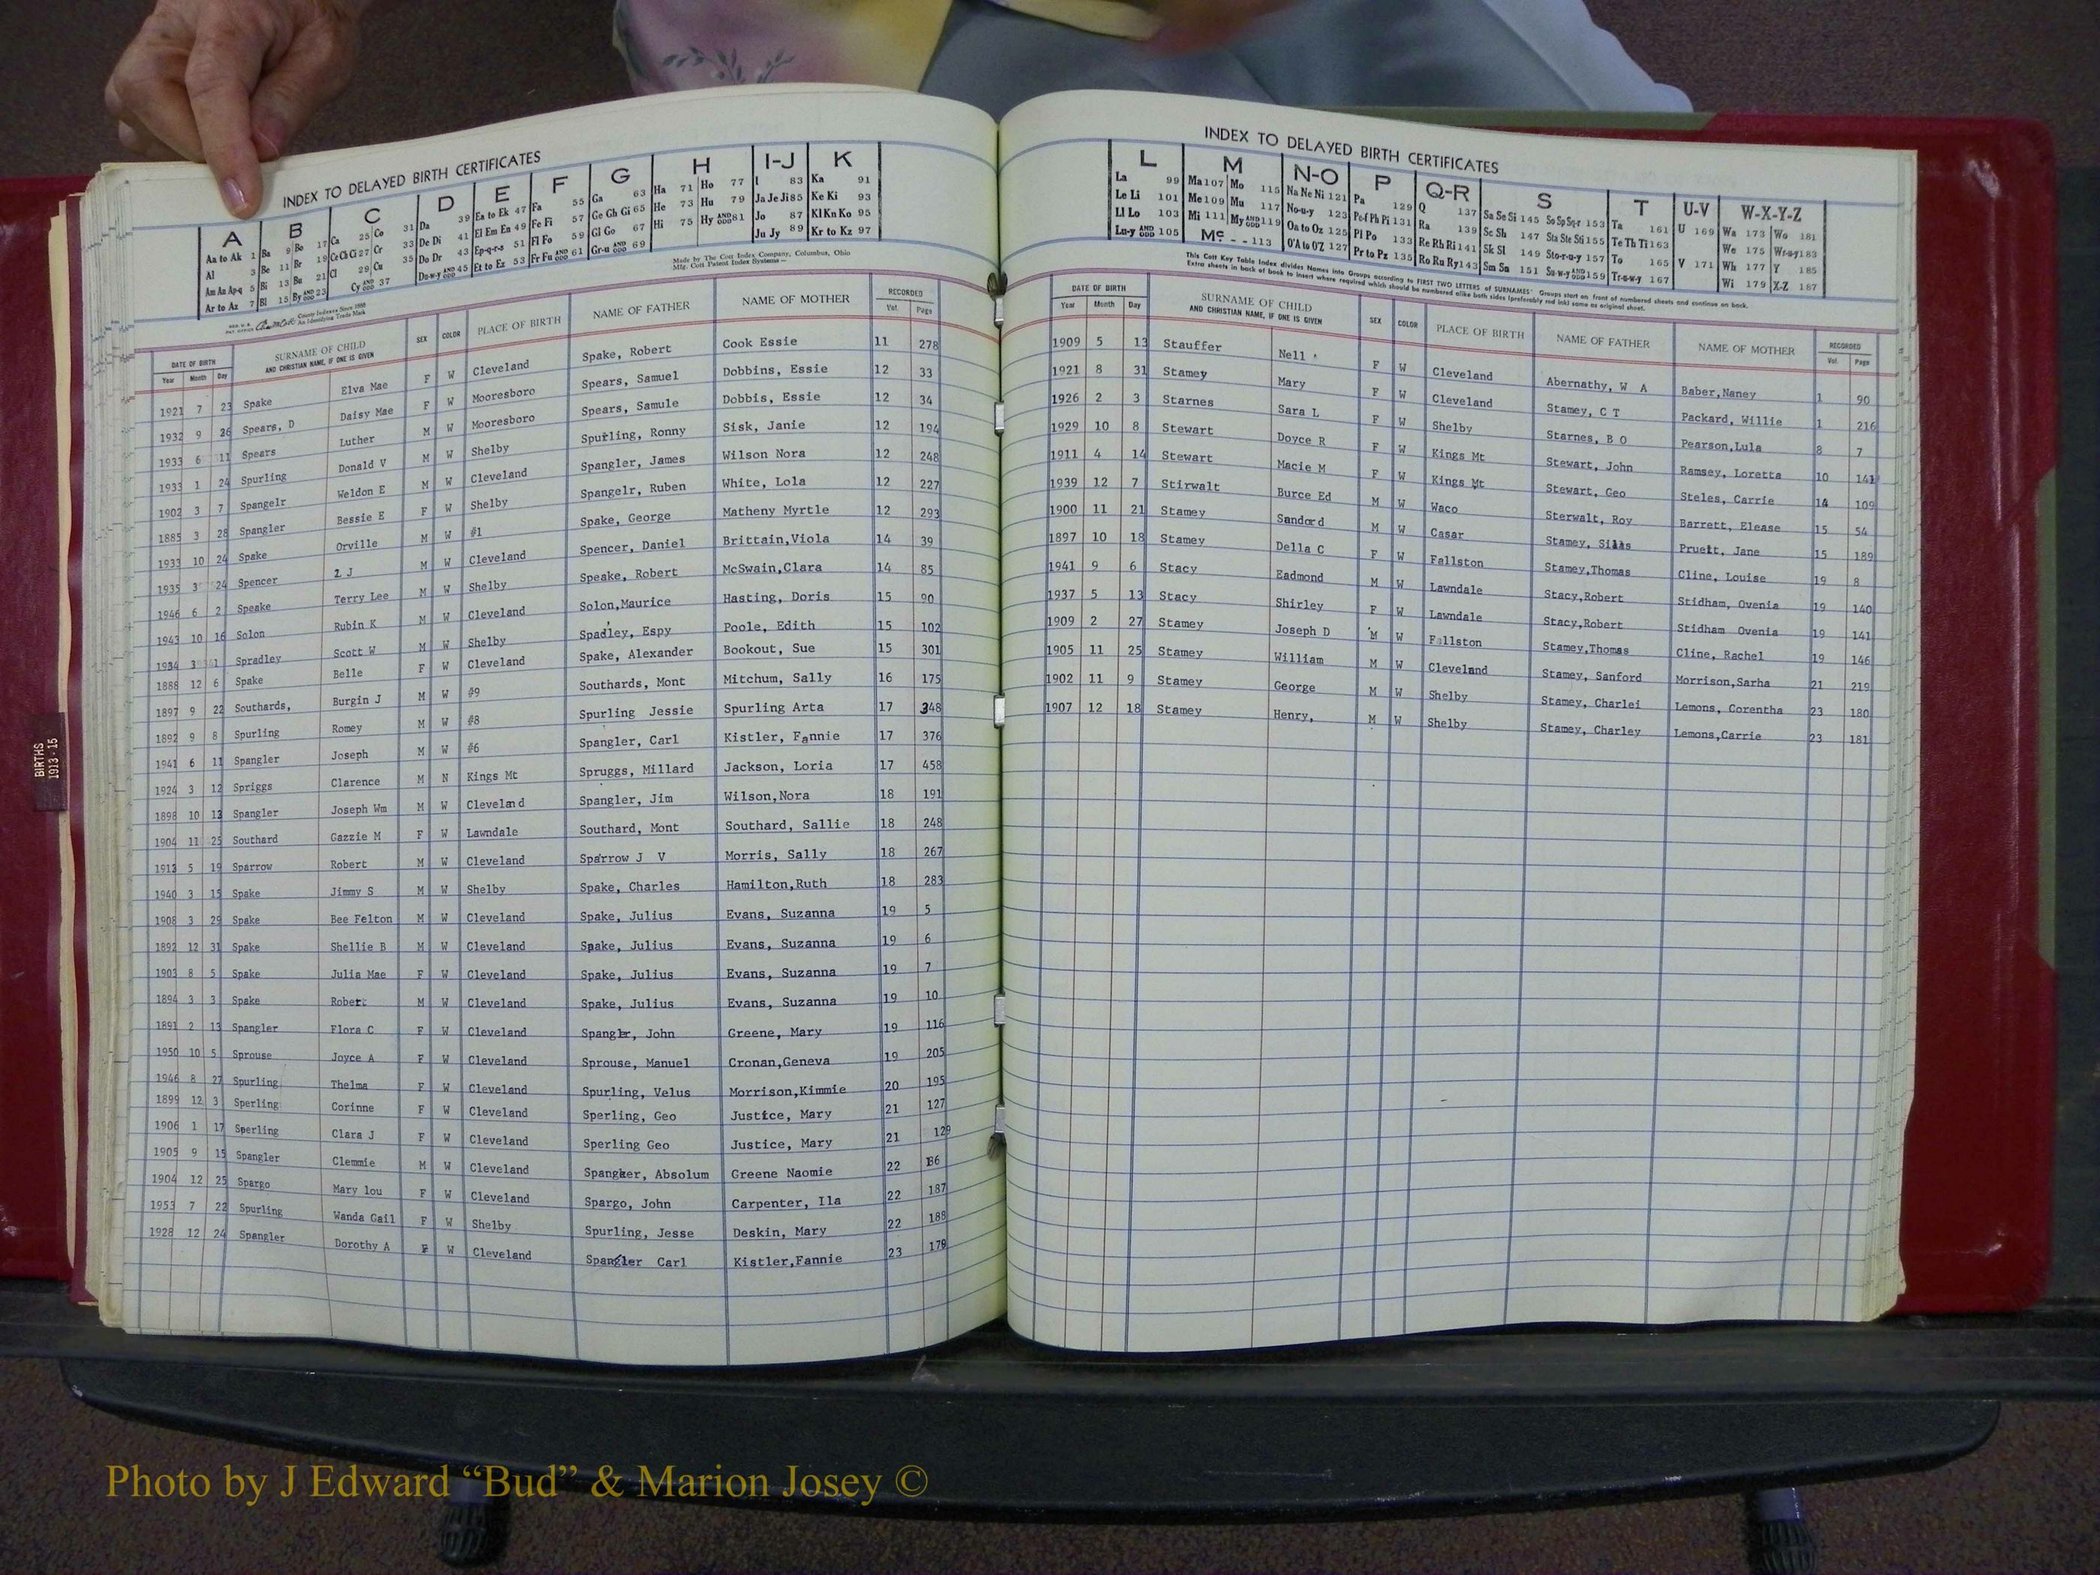 INDEX TO DELAYED BIRTH CERTIFICATES
A B C D E F G H I-J K
Aa to Ak 1 Ba 9 Bo 17 Ca 25 Co 31 Da 39 Ea to Ek 47 Fa 55 Ga 63 Ha 71 Ho 77 I 83 Ka 91
Al 3 Be 11 Br 19 Ce Ch Ci 27 Cr 33 De Di 41 El Em En 49 Fe Fi 57 Ge Gh Gi 65 He 73 Hu 79 Ja Je Ji 85 Ke Ki 93
Am An Ap-q 5 Bi 13 Bu 21 Cl 29 Cu 35 Do Dr 43 Ep-q-r-s 51 Fl Fo 59 Gl Go 67 Hi 75 Hy AND ODD 81 Jo 87 Kl Kn Ko 95
Ar to Az 7 Bl 15 By AND ODD 23 Cy AND ODD 37 Du-w-y AND ODD 45 Et to Ez 53 Fr Fu AND ODD 61 Gr-u AND ODD 69 Ju Jy 89 Kr to Kz 97
County Indexes Since 1888
An Identifying Trade Mark
Made by The Cott Index Company, Columbus, Ohio
Mfg. Cott Patent Index Systems
DATE OF BIRTH SURNAME OF CHILD SEX COLOR PLACE OF BIRTH NAME OF FATHER NAME OF MOTHER RECORDED
Year Month Day AND CHRISTIAN NAME, IF ONE IS GIVEN Vol. Page
1921 7 23 Spake Elva Mae F W Cleveland Spake, Robert Cook Essie 11 278
1932 9 26 Spears, D Daisy Mae F W Mooresboro Spears, Samuel Dobbins, Essie 12 33
1933 6 11 Spears Luther M W Mooresboro Spears, Samule Dobbis, Essie 12 34
1933 1 24 Spurling Donald V M W Shelby Spurling, Ronny Sisk, Janie 12 194
1902 3 7 Spangelr Weldon E M W Cleveland Spangler, James Wilson Nora 12 248
1885 3 28 Spangler Bessie E F W Shelby Spangelr, Ruben White, Lola 12 227
1933 10 24 Spake Orville M W #1 Spake, George Matheny Myrtle 12 293
1935 3 24 Spencer Z J M W Cleveland Spencer, Daniel Brittain,Viola 14 39
1946 6 2 Speake Terry Lee M W Shelby Speake, Robert McSwain,Clara 14 85
1943 10 16 Solon Rubin K M W Cleveland Solon,Maurice Hasting, Doris 15 90
1934 3 Spradley Scott W M W Shelby Spadley, Espy Poole, Edith 15 102
1888 12 6 Spake Belle F W Cleveland Spake, Alexander Bookout, Sue 15 301
1897 9 22 Southards, Burgin J M W #9 Southards, Mont Mitchum, Sally 16 175
1892 9 8 Spurling Romey M W #8 Spurling Jessie Spurling Arta 17 348
1941 6 11 Spangler Joseph M W #6 Spangler, Carl Kistler, Fannie 17 376
1924 3 12 Spriggs Clarence M N Kings Mt Spruggs, Millard Jackson, Loria 17 458
1898 10 12 Spangler Joseph Wm M W Cleveland Spangler, Jim Wilson,Nora 18 191
1904 11 25 Southard Gazzie M F W Lawndale Southard, Mont Southard, Sallie 18 248
1912 5 19 Sparrow Robert M W Cleveland Sparrow J V Morris, Sally 18 267
1940 3 15 Spake Jimmy S M W Shelby Spake, Charles Hamilton,Ruth 18 283
1908 3 29 Spake Bee Felton M W Cleveland Spake, Julius Evans, Suzanna 19 5
1892 12 31 Spake Shellie B M W Cleveland Spake, Julius Evans, Suzanna 19 6
1903 8 5 Spake Julia Mae F W Cleveland Spake, Julius Evans, Suzanna 19 7
1894 3 3 Spake Robert M W Cleveland Spake, Julius Evans, Suzanna 19 10
1891 2 13 Spangler Flora C F W Cleveland Spangler, John Greene, Mary 19 116
1950 10 5 Sprouse Joyce A F W Cleveland Sprouse, Manuel Cronan,Geneva 19 205
1946 8 27 Spurling Thelma F W Cleveland Spurling, Velus Morrison,Kimmie 20 195
1899 12 3 Sperling Corinne F W Cleveland Sperling, Geo Justice, Mary 21 127
1906 1 17 Sperling Clara J F W Cleveland Sperling Geo Justice, Mary 21 129
1905 9 15 Spangler Clemmie M W Cleveland Spangker, Absolum Greene Naomie 22 86
1904 12 25 Spargo Mary lou F W Cleveland Spargo, John Carpenter, Ila 22 187
1953 7 22 Spurling Wanda Gail F W Shelby Spurling, Jesse Deskin, Mary 22 188
1928 12 24 Spangler Dorothy A F W Cleveland Spangler Carl Kistler,Fannie 23 179
INDEX TO DELAYED BIRTH CERTIFICATES
L M N-O P Q-R S T U-V W-X-Y-Z
La 99 Ma 107 Mo 115 Na Ne Ni 121 Pa 129 Q 137 Sa Se Si 145 So Sp Sq-r 153 Ta 161 U 169 Wa 173 Wo 181
Le Li 101 Me 109 Mu 117 No-u-y 123 Pe-f Ph Pi 131 Ra 139 Sc Sh 147 Sta Ste Sti 155 Te Th Ti 163 We 175 Wr-u-y 183
Ll Lo 103 Mi 111 My AND ODD 119 Oa to Oz 125 Pl Po 133 Re Rh Ri 141 Sk Sl 149 Sto-r-u-y 157 To 165 V 171 Wh 177 Y 185
Lu-y AND ODD 105 Mc - - 113 O'A to O'Z 127 Pr to Pz 135 Ro Ru Ry 143 Sm Sn 151 Su-w-y AND ODD 159 Tr-u-w-y 167 Wi 179 X-Z 187
This Cott Key Table Index divides Names into Groups according to FIRST TWO LETTERS of SURNAMES Groups start on front of numbered sheets and continue on back.
Extra sheets in back of book to insert where required which should be numbered alike both sides (preferably red ink) same as original sheet.
DATE OF BIRTH SURNAME OF CHILD SEX COLOR PLACE OF BIRTH NAME OF FATHER NAME OF MOTHER RECORDED
Year Month Day AND CHRISTIAN NAME, IF ONE IS GIVEN Vol. Page
1909 5 13 Stauffer Nell F W Cleveland Abernathy, W A Baber,Naney 1 90
1921 8 31 Stamey Mary F W Cleveland Stamey, C T Packard, Willie 1 216
1926 2 3 Starnes Sara L F W Shelby Starnes, B O Pearson,Lula 8 7
1929 10 8 Stewart Doyce R F W Kings Mt Stewart, John Ramsey, Loretta 10 141
1911 4 14 Stewart Macie M F W Kings Mt Stewart, Geo Steles, Carrie 14 109
1939 12 7 Stirwalt Burce Ed M W Waco Sterwalt, Roy Barrett, Elease 15 54
1900 11 21 Stamey Sandord M W Casar Stamey, Silas Pruett, Jane 15 189
1897 10 18 Stamey Della C F W Fallston Stamey,Thomas Cline, Louise 19 8
1941 9 6 Stacy Eadmond M W Lawndale Stacy,Robert Stidham, Ovenia 19 140
1937 5 13 Stacy Shirley F W Lawndale Stacy,Robert Stidham Ovenia 19 141
1909 2 27 Stamey Joseph D M W Fallston Stamey,Thomas Cline, Rachel 19 146
1905 11 25 Stamey William M W Cleveland Stamey, Sanford Morrison,Sarha 21 219
1902 11 9 Stamey George M W Shelby Stamey, Charlei Lemons, Corentha 23 180
1907 12 18 Stamey Henry, M W Shelby Stamey, Charley Lemons,Carrie 23 181
BIRTHS
1913-15
Photo by J Edward “Bud” & Marion Josey ©